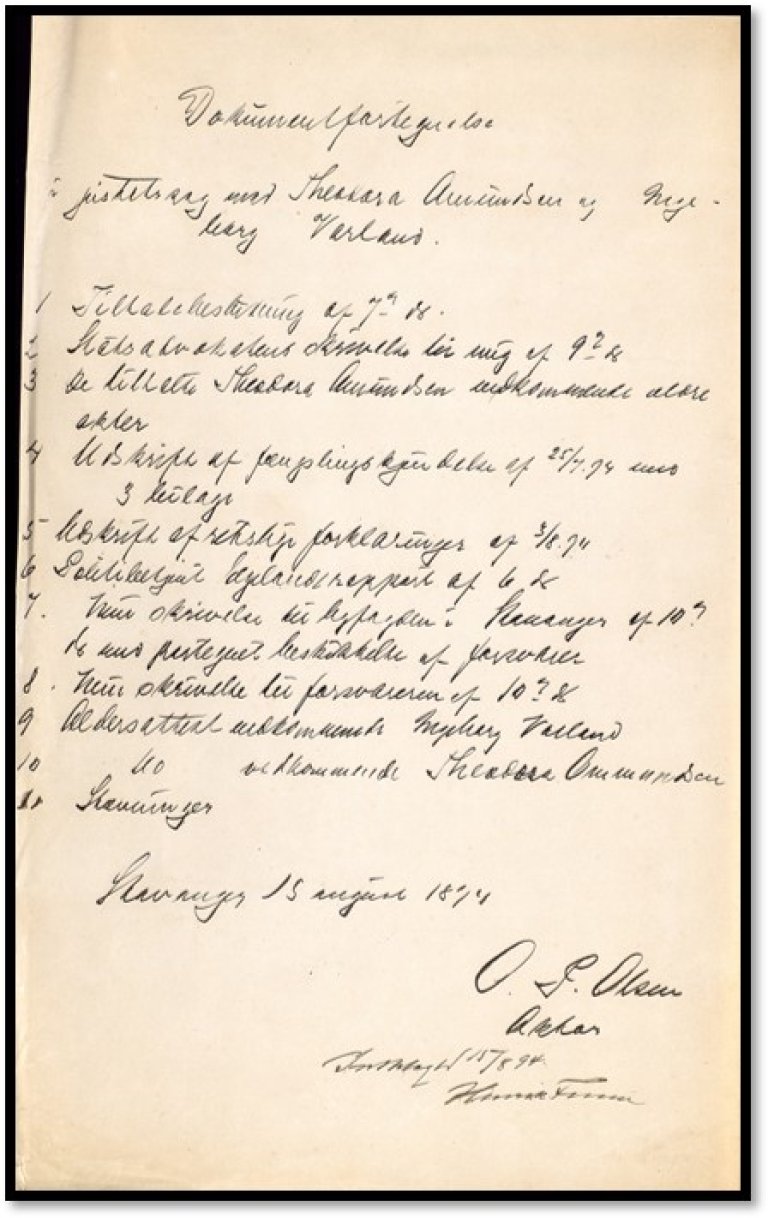 Dokumentfortegnelse
i justitssag mod Theodora Amundsen og Inge-
borg Varland.
1 Tiltalebeslutning af 7de ds.
2 Statsadvokatens skrivelse til mig af 9de ds
3 De tiltalte Theodora Amundsen vedkommende ældre
akter
4 Udskrift af fængslingskjendelse af 25/7.94 med
3 bilage
5 Udskrift af retslige forklaringer af 3/8.94
6 Politibetjent rapport af 6 ds
7. Min skrivelse til byfogden i Stavanger af 10de
ds med paategnet beskikkelse af forsvarer
8. Min skrivelse til forsvareren af 10de ds
9 Aldersattest vedkommende Ingeborg Varland
10 do vedkommende Theodora Ommundsen
11 Stævninger
Stavanger 15 august 1894
O. S. Olsen
Aktor
15/8 94.
Henrik